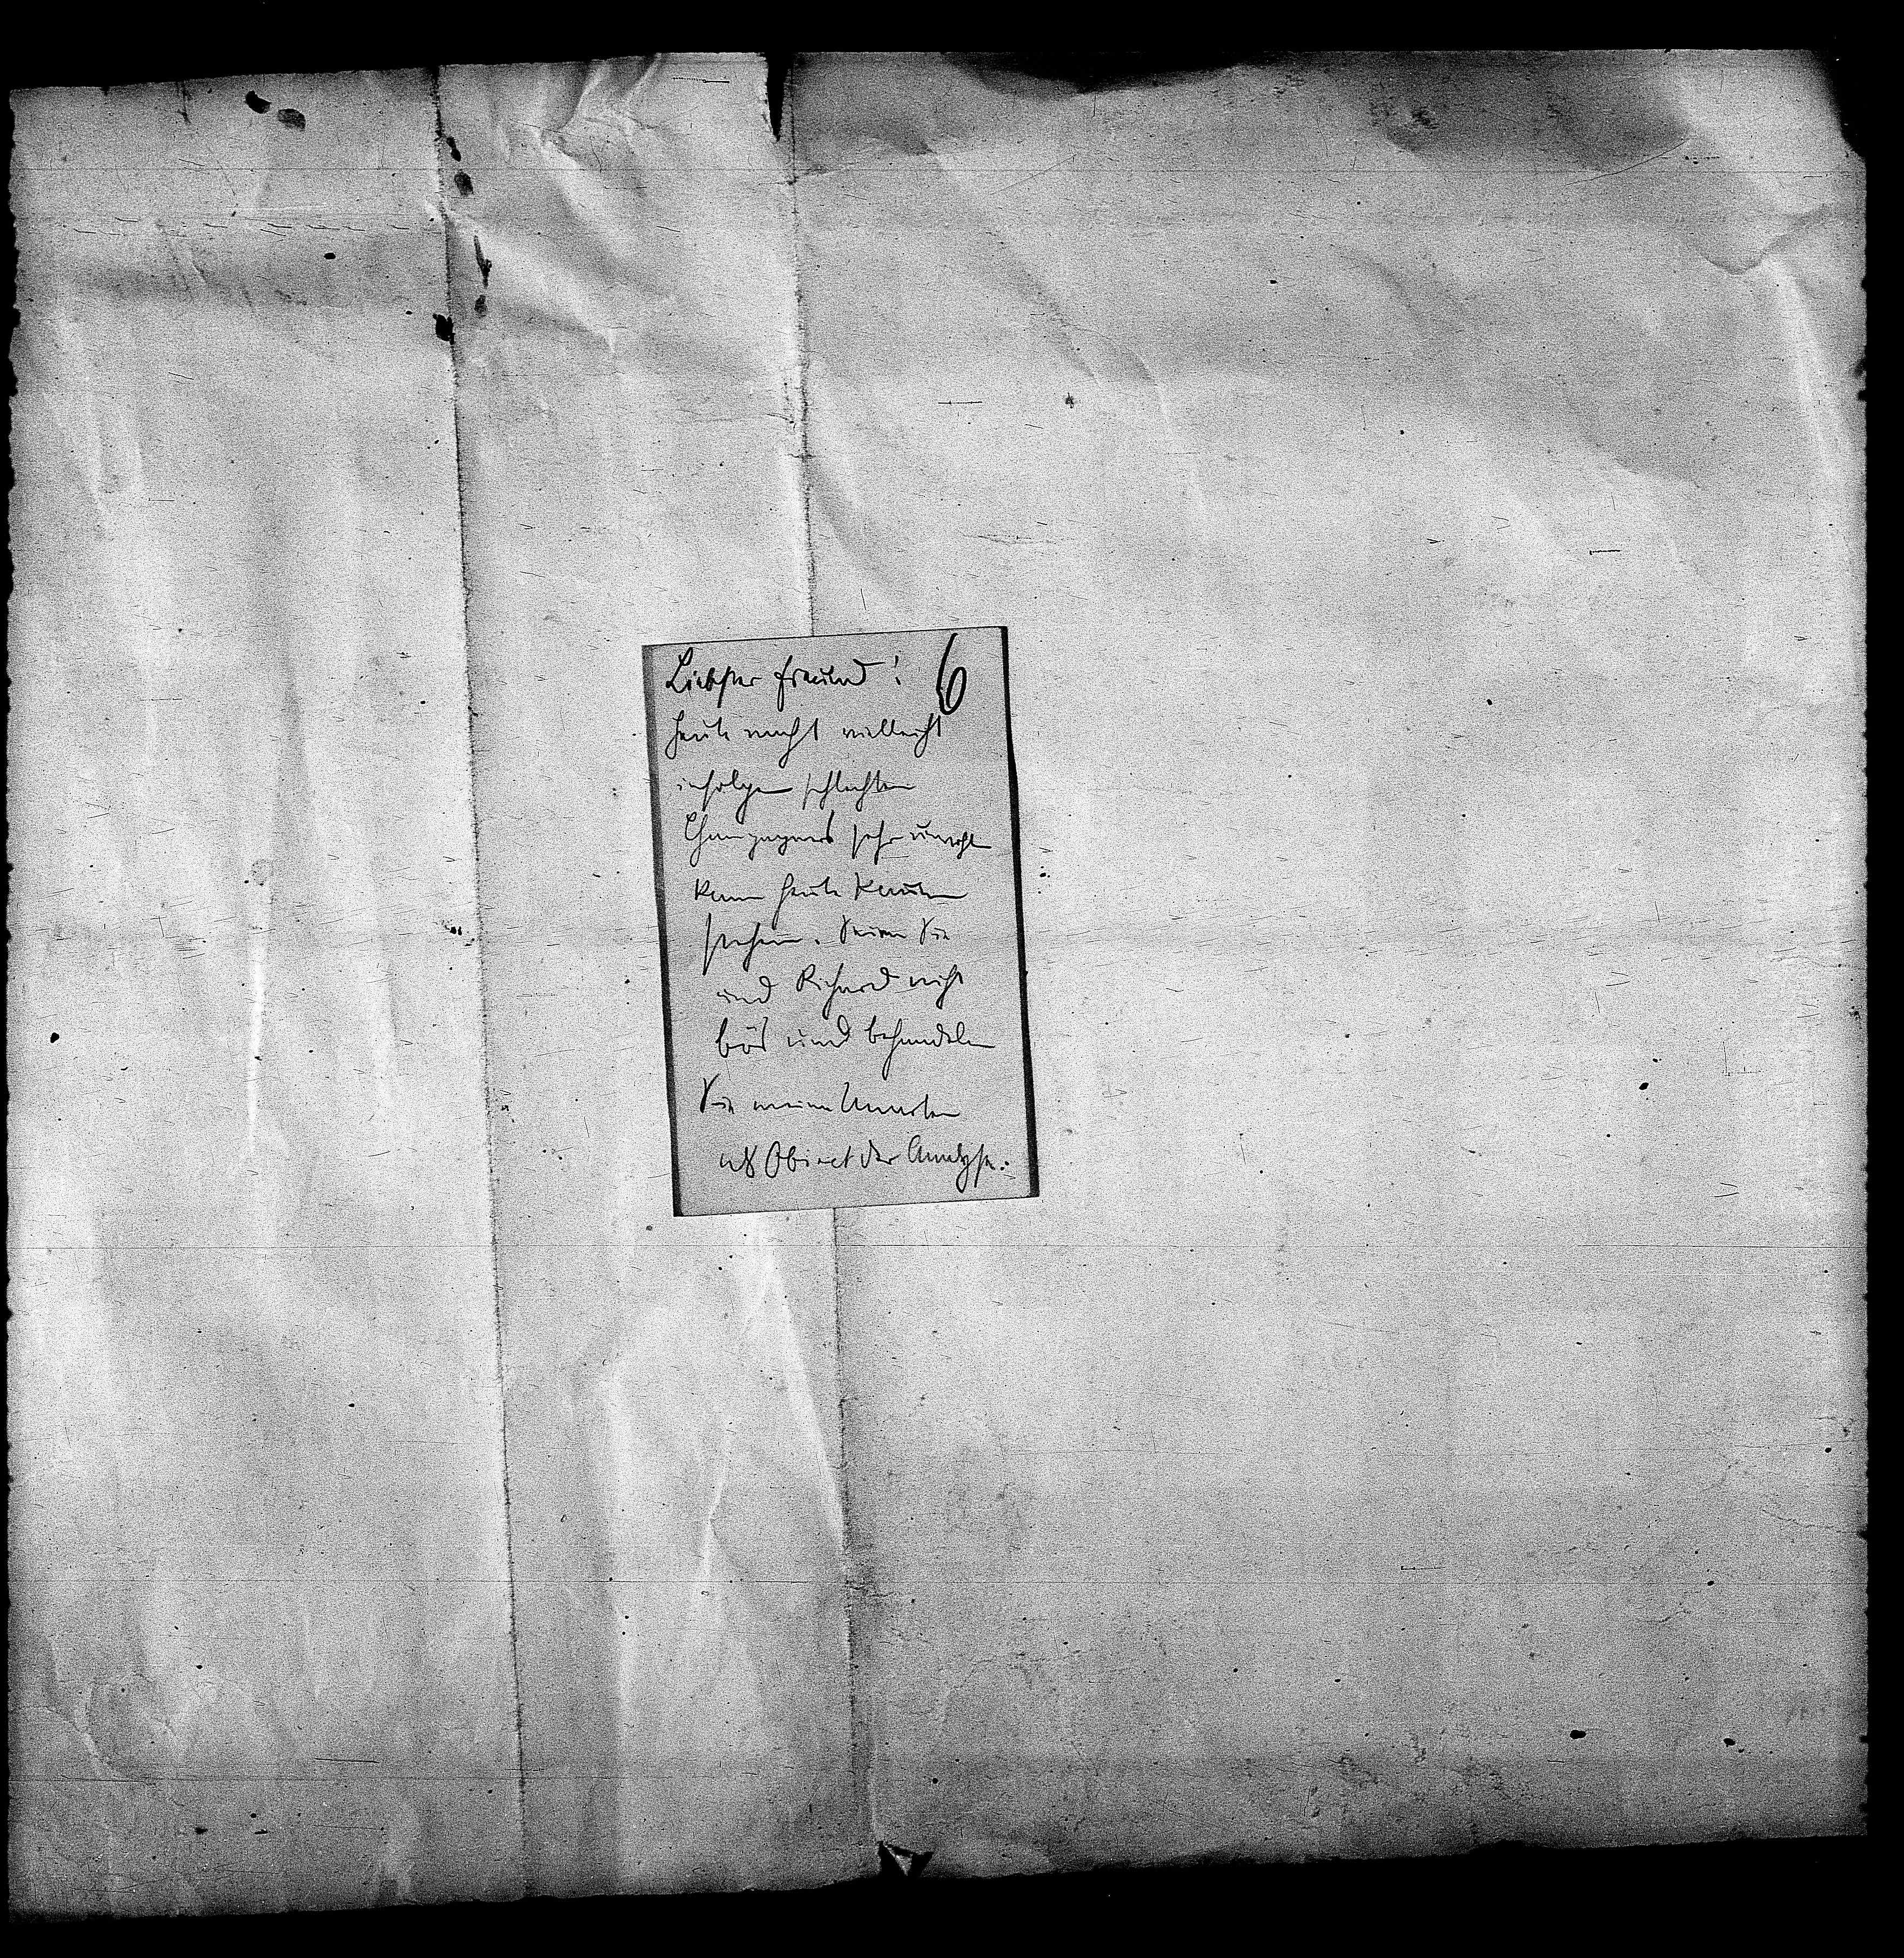 Liebster Freund! 6
Heute nacht vielleicht
infolge schlechten
Champagners sehr unwohl
kann heute kaum
stehen. Seien Sie
und Richard nicht
bös und behandeln
Sie meine
als Object der Analyse.